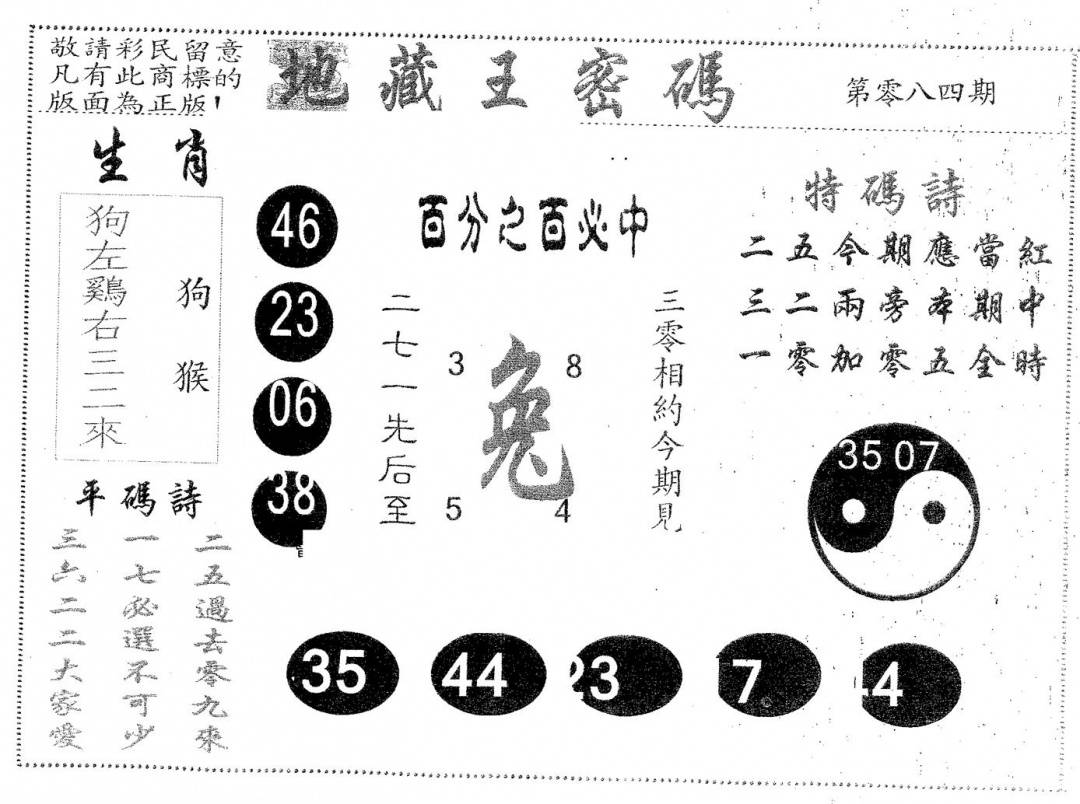 敬請彩民留意
凡有此商標的
版面為正版！
地藏王密碼
第零八四期
生肖
狗左鷄右三二來
狗猴
46
23
06
38
百分之百必中
二七一先后至
3
8
兔
5
4
三零相約今期見
特碼詩
二五今期應當紅
三二兩旁本期中
一零加零五全時
35 07
平碼詩
二五過去零九來
一七必選不可少
三六二二大家愛
35
44
23
7
44